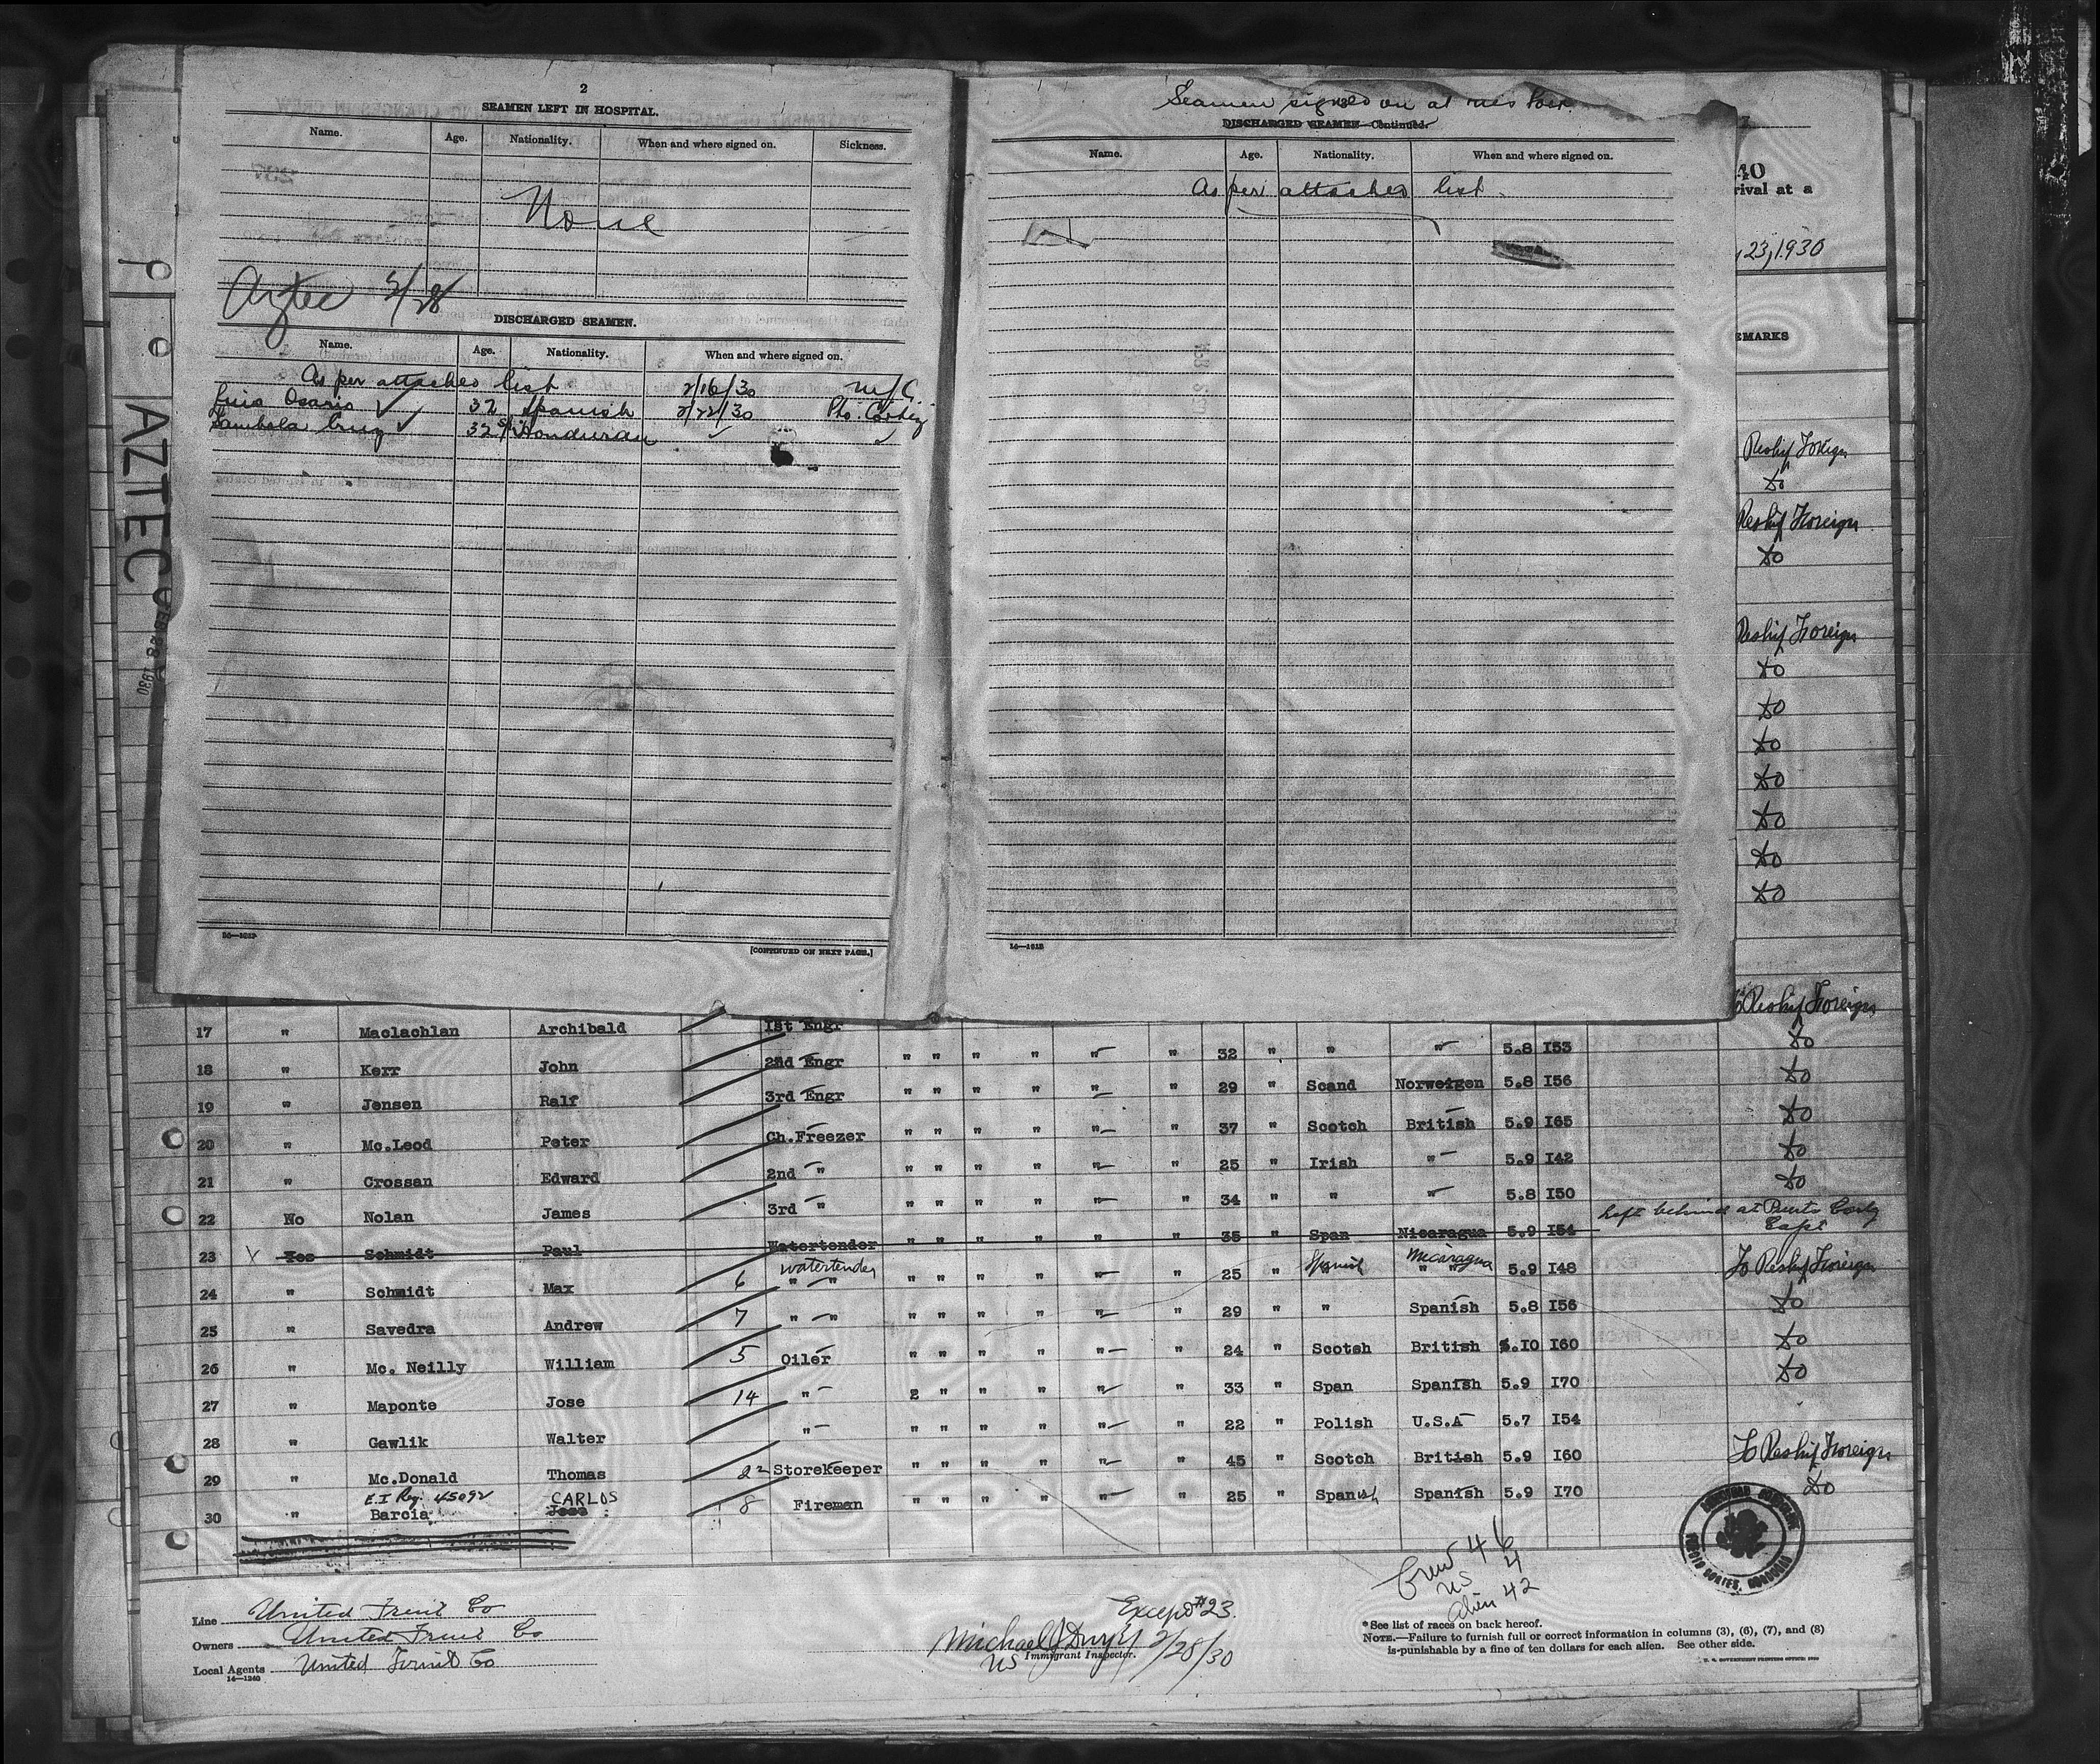 2
SEAMEN LEFT IN HOSPITAL.
Name. Age. Nationality. When and where signed on. Sickness.
None
Aztec 2/28
DISCHARGED SEAMEN.
Name. Age. Nationality. When and where signed on.
As per attached list 2/16/30 N/C.
Luis Osario 32 Spanish 2/22/30 Pto. Cortez
Sambola Cruz 32 Sp Honduran
[CONTINUED ON NEXT PAGE.]
Seamen signed on at this Port
DISCHARGED SEAMEN—Continued.
Name. Age. Nationality. When and where signed on.
As per attached list.
AZTEC
FEB 28 1930
40
rival at a
, 23, 1930
EMARKS
Reship Foreign
do
Reship Foreign
do
Reship Foreign
do
do
do
do
do
do
do
To Reship Foreign
17 " Maclachlan Archibald 1st Engr " " " " " " 32 " " " 5.8 I53 do
18 " Kerr John 2nd Engr " " " " " " 29 " Scand Norweigen 5.8 I56 do
19 " Jensen Ralf 3rd Engr " " " " " " 37 " Scotch British 5.9 I65 do
20 " Mc.Leod Peter Ch.Freezer " " " " " " 25 " Irish " 5.9 I42 do
21 " Crossan Edward 2nd " " " " " " " 34 " " " 5.8 I50 do
22 No Nolan James 3rd " " " " " " "
Left behind at Puerto Cortez
Capt
23 X Yes Schmidt Paul Watertender " " " " " " 35 " Span Nicaragua 5.9 I54
24 " Schmidt Max 6 watertender " " " " " " 25 " Spanish Nicaragua 5.9 I48 To Reship Foreign
25 " Savedra Andrew 7 " " " " " " " " 29 " " Spanish 5.8 I56 do
26 " Mc. Neilly William 5 Oiler " " " " " " 24 " Scotch British 5.10 I60 do
27 " Maponte Jose 14 " 2 " " " " " 33 " Span Spanish 5.9 I70 do
28 " Gawlik Walter " " " " " " " 22 " Polish U.S.A 5.7 I54
29 " Mc.Donald Thomas 22 Storekeeper " " " " " " 45 " Scotch British 5.9 I60 To Reship Foreign
E.I Reg. 45092 CARLOS
30 " Barcia Jose 8 Fireman " " " " " " 25 " Spanish Spanish 5.9 I70 do
Crew 46
US 4
Alien 42
PUERTO CORTES, HONDURAS
Line United Fruit Co
Owners United Fruit Co
Local Agents United Fruit Co
14—1240
Except #23.
Michael J Dwyer 2/28/30
US Immigrant Inspector.
*See list of races on back hereof.
NOTE.—Failure to furnish full or correct information in columns (3), (6), (7), and (8)
is punishable by a fine of ten dollars for each alien. See other side.